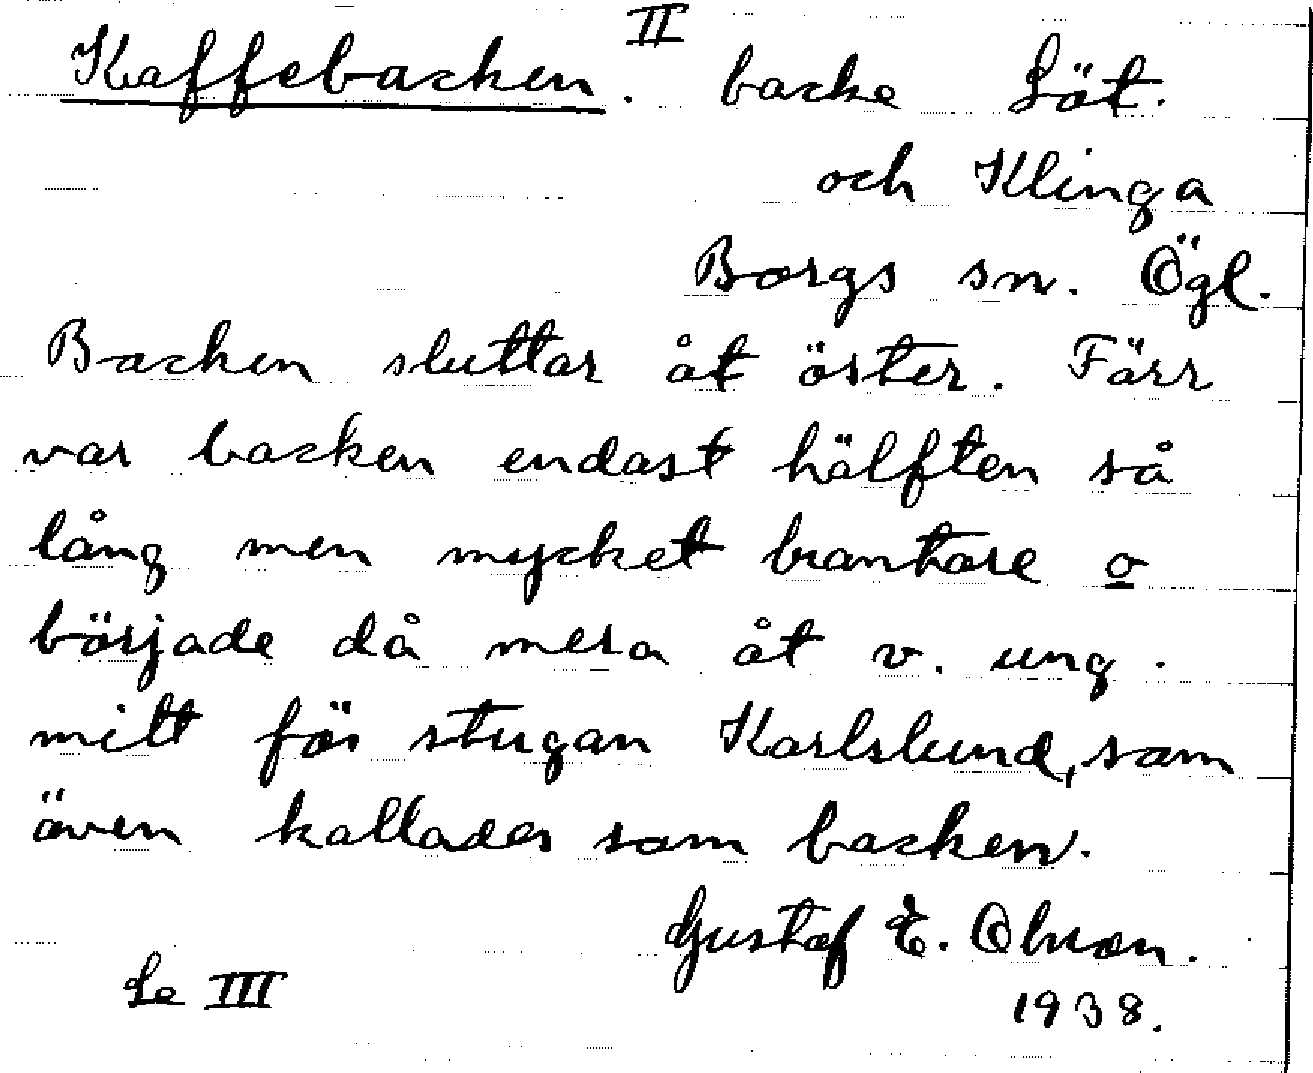 Kaffebacken. II backe Löt.
och Klinga
Borgs sn. Ögl.
Backen sluttar åt öster. Förr
var backen endast hälften så
lång men mycket brantare o
började då mera åt v. ung.
mitt för stugan Karlslund, som
även kallades som backen.
Gustaf E. Olsson.
Se III
1938.